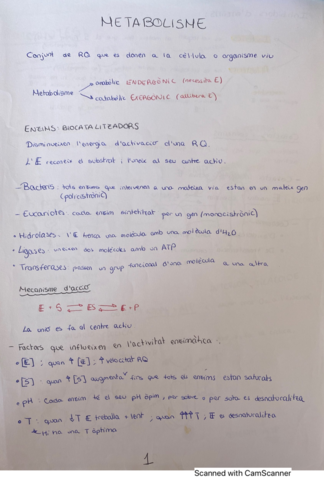 METABOLISME
Conjunt de RQ que es donen a la cèl·lula o organisme viu
anabòlic ENDERGÒNIC (necessita E)
Metabolisme
catabòlic EXERGÒNIC (allibera E)
ENZIMS: BIOCATALITZADORS
Disminueixen l'energia d'activació d'una RQ.
L'E reconeix el substrat i l'uneix al seu centre actiu.
- Bacteris: tots enzims que intervenen a una mateixa via estan en un mateix gen
(policistrònic)
- Eucariotes cada enzim sintetitzat per un gen (monocistrònic)
• Hidrolases: l'E trenca una molècula amb una molècula d'H2O
• Ligases: uneixen dos molècules amb un ATP
• Transferases: passen un grup funcional d'una molècula a una altra
Mecanisme d'acció
E + S ⇌ ES ⇌ E + P
La unió es fa al centre actiu
- Factors que influeixen en l'activitat enzimàtica:
• [E]: quan ↑[E]; ↑ velocitat RQ
• [S]: quan ↑[S] augmenta V fins que tots els enzims estan saturats
• pH: Cada enzim té el seu pH òpim, per sobre o per sota es desnaturalitza
• T: quan ↓T E treballa + lent, quan ↑↑↑T, E es desnaturalitza
Hi ha una T òptima
1
Scanned with CamScanner